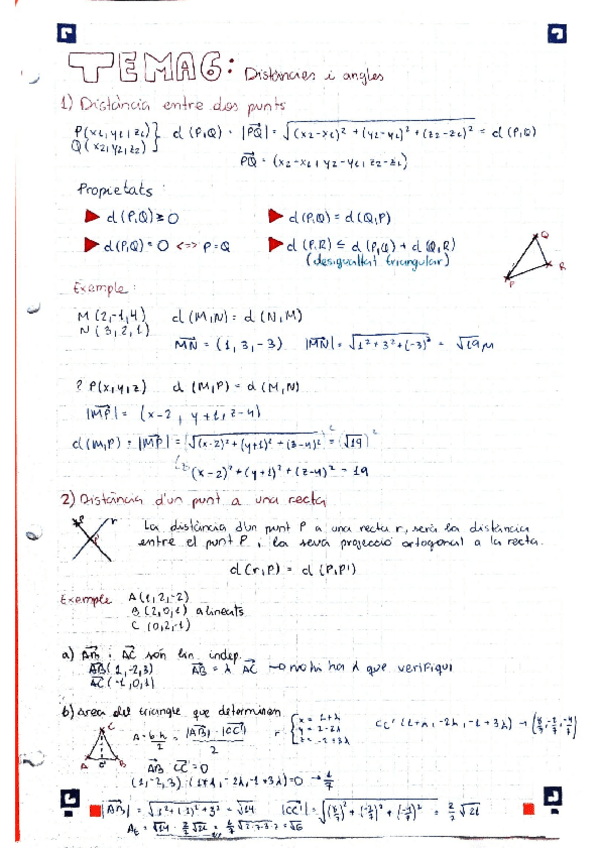 TEMA 6: Distàncies i angles
1) Distància entre dos punts
P(x₁,y₁,z₁)} d(P,Q) = |PQ| = √(x₂-x₁)² + (y₂-y₁)² + (z₂-z₁)² = d(P,Q)
Q(x₂,y₂,z₂)
PQ = (x₂-x₁, y₂-y₁, z₂-z₁)
Propietats:
d(P,Q) ≥ 0 d(P,Q) = d(Q,P)
d(P,Q) = 0 <=> P=Q d(P,R) ≤ d(P,Q) + d(Q,R)
(desigualtat triangular)
Q
R
P
Exemple:
M(2,-1,4) d(M,N) = d(N,M)
N(3,2,1)
MN = (1,3,-3) |MN| = √1²+3²+(-3)² = √19 u
? P(x,y,z) d(M,P) = d(M,N)
|MP| = (x-2, y+1, z-4)
d(M,P) = |MP| = (√(x-2)²+(y+1)²+(z-4)²)² = (√19)²
(x-2)²+(y+1)²+(z-4)² = 19
2) Distància d'un punt a una recta
P r
La distància d'un punt P a una recta r, serà la distància
entre el punt P i la seva projecció ortogonal a la recta.
d(r,P) = d(P,P')
Exemple A(1,2,-2)
B(2,0,1) alineats
C(0,2,-1)
a) AB i AC són lin indep.
AB(1,-2,3) AB = λ AC → no hi ha λ que verifiqui
AC(-1,0,1)
b) Àrea del triangle que determinen
C
A B
A = b·h/2 = |AB|·|CC'|/2 r {x = 1+λ
y = 2-2λ
z = -2+3λ
AB · CC' = 0
(1,-2,3)·(1+λ, -2λ, -1+3λ) = 0
|AB| = √1²+(-2)²+3² = √14